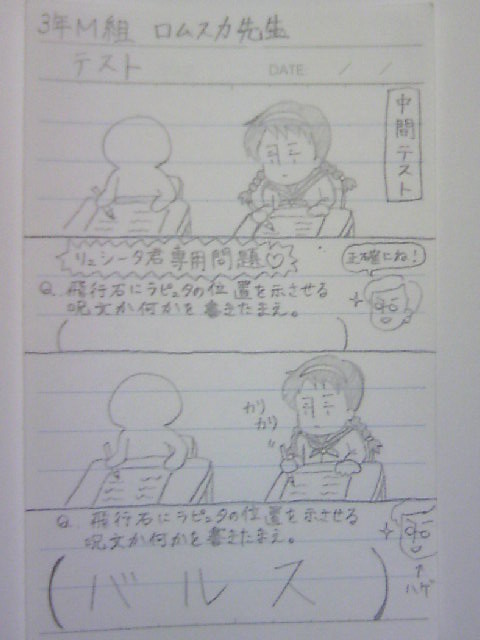 3年M組 ロムスカ先生
テスト
DATE / /
中間テスト
リュシータ君専用問題♡
正確にね!
Q. 飛行石にラピュタの位置を示させる
呪文か何かを書きたまえ。
( )
カリ
カリ
Q. 飛行石にラピュタの位置を示させる
呪文か何かを書きたまえ。
(バルス)
↑
ハゲ